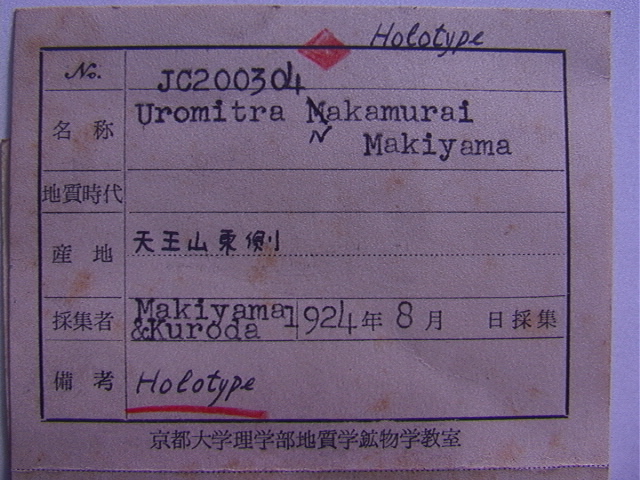 Holotype
No. JC200304
名称 Uromitra Nakamurai
N
Makiyama
地質時代
産地 天王山東側
採集者 Makiyama & Kuroda 1924年 8月 日採集
備考 Holotype
京都大学理学部地質学鉱物学教室